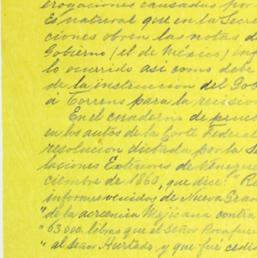 erogaciones causadas por
Es natural que en la Secre
ciones obren las notas d
Gobierno (el de México) 
lo ocurrido así como debe
de la instrucción del Gob
á Torrens para la recisión
En el cuaderno de prueb
en los autos de la Corte Federal
resolución dictada por la S
laciones Exteriores de Venezue
ciembre de 1865, que dice: " Re
informes venidos de Nueva Gran
" de la acreencia Mejicana contra
" 63.000 libras que el Señor Rocafue
" al Señor Hurtado, y que fué cedid